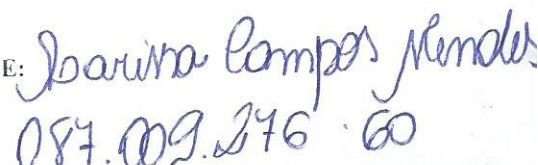 E: Larissa Campos Mendes
087.009.276.60